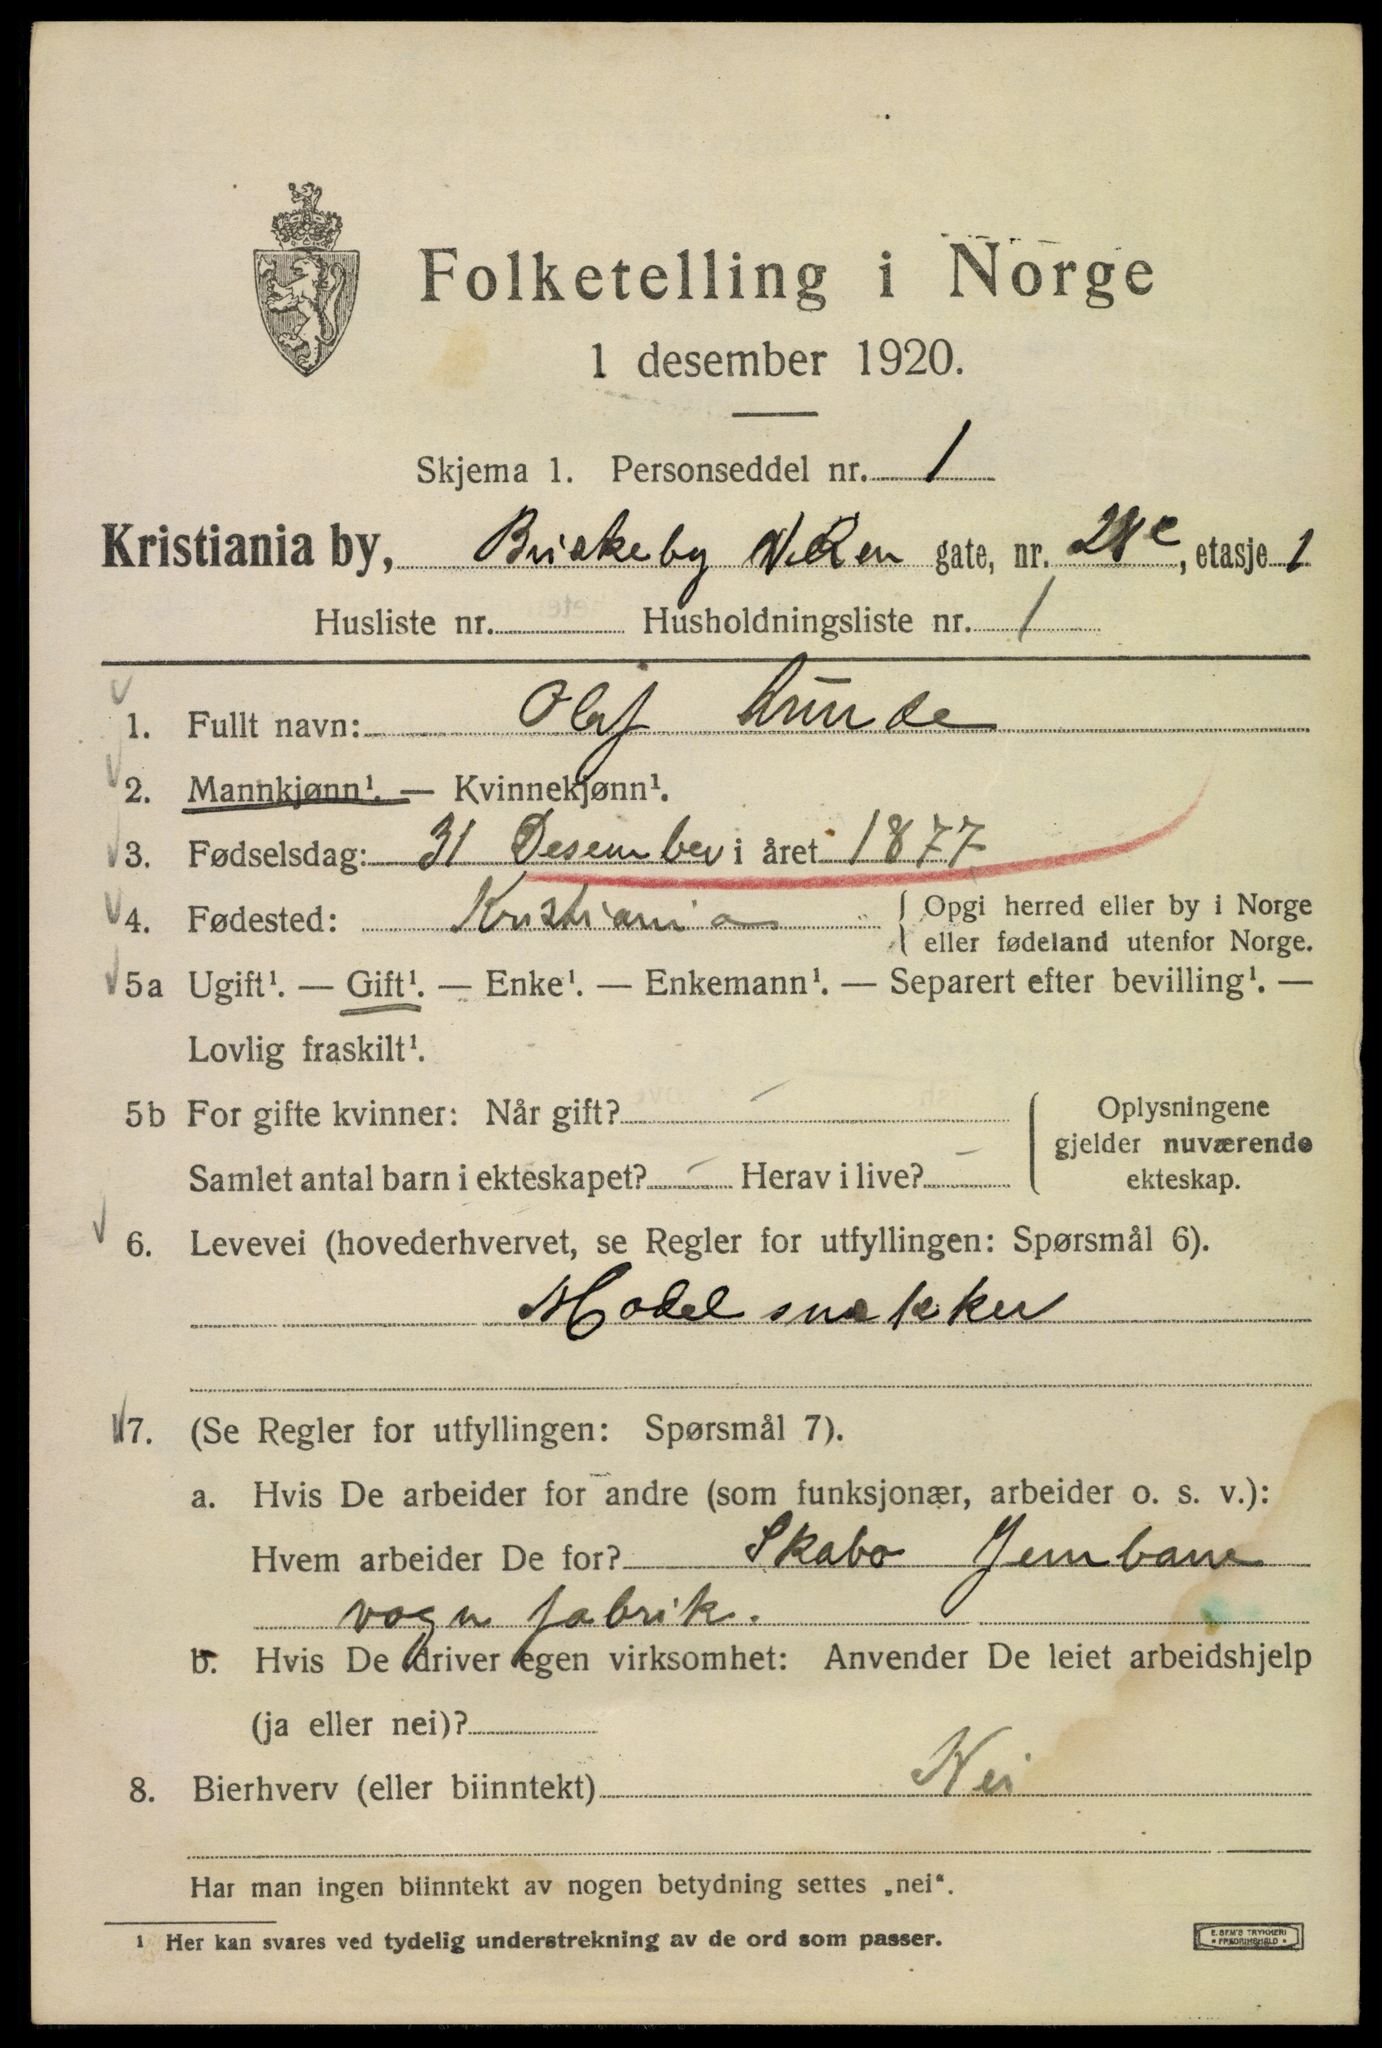 Folketelling i Norge
1 desember 1920.
Skjema 1. Personseddel nr. 1
Kristiania by, Briskeby Veien gate, nr. 28c, etasje 1
Husliste nr. Husholdningsliste nr. 1
1. Fullt navn: Olaf Lunde
2. Mannkjønn¹. — Kvinnekjønn¹.
3. Fødselsdag: 31 Desember i året 1877
4. Fødested: Kristiania { Opgi herred eller by i Norge
eller fødeland utenfor Norge.
5a Ugift¹. — Gift¹. — Enke¹. — Enkemann¹. — Separert efter bevilling¹. —
Lovlig fraskilt¹.
5b For gifte kvinner: Når gift? –
Samlet antal barn i ekteskapet? – Herav i live? –
Oplysningene
gjelder nuværende
ekteskap.
6. Levevei (hovederhvervet, se Regler for utfyllingen: Spørsmål 6).
Model snekker
7. (Se Regler for utfyllingen: Spørsmål 7).
a. Hvis De arbeider for andre (som funksjonær, arbeider o. s. v.):
Hvem arbeider De for? Skabo Jernbane
vogn fabrik.
b. Hvis De driver egen virksomhet: Anvender De leiet arbeidshjelp
(ja eller nei)?
8. Bierhverv (eller biinntekt) Nei
Har man ingen biinntekt av nogen betydning settes „nei“.
1 Her kan svares ved tydelig understrekning av de ord som passer.
E. SEM'S TRYKKERI
• FREDRIKSHALD •